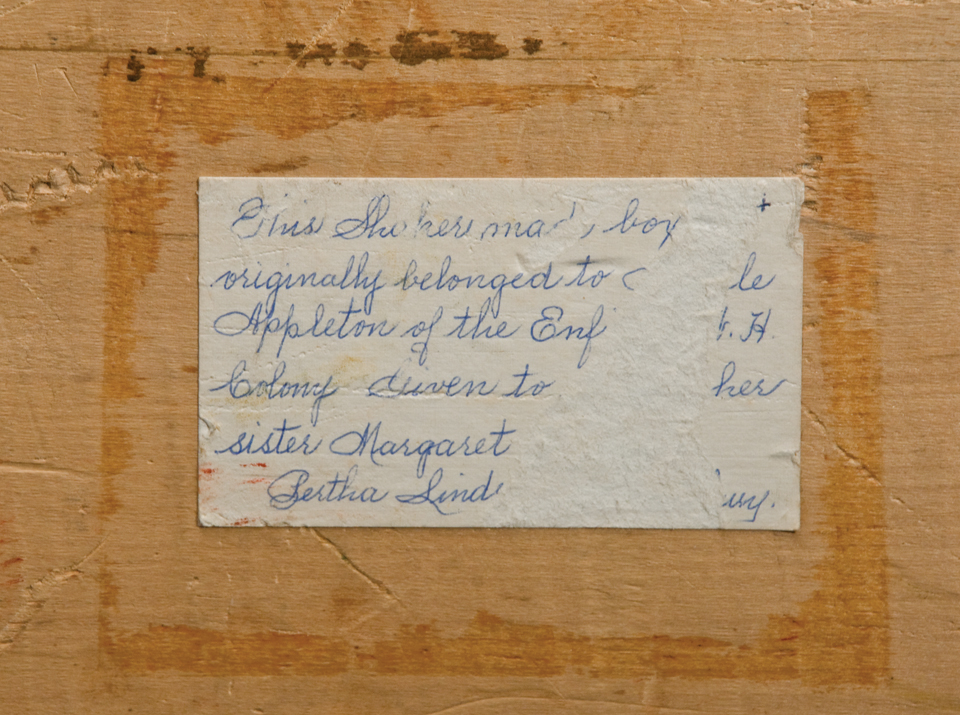 This Shaker made box
originally belonged to
Appleton of the Enf . H.
Colony Given to her
sister Margaret
Bertha Lind